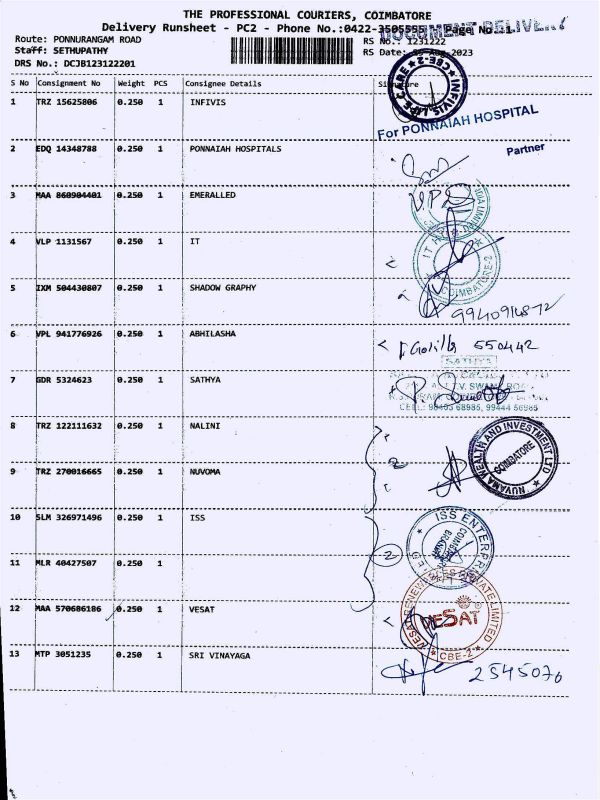 THE PROFESSIONAL COURIERS, COIMBATORE
DOCUMENT DELIVERY
Delivery Runsheet - PC2 - Phone No.:0422-3505555 Page No.:1
Route: PONNURANGAM ROAD
RS No.: 1231222
Staff: SETHUPATHY
RS Date: Aug 2023
DRS No.: DCJB123122201
S No Consignment No Weight PCS Consignee Details Signature
1 TRZ 15625806 0.250 1 INFIVIS
INFIVIS LIFE CARE CBE-2
For PONNAIAH HOSPITAL
Partner
2 EDQ 14348788 0.250 1 PONNAIAH HOSPITALS
3 MAA 860904401 0.250 1 EMERALLED
4 VLP 1131567 0.250 1 IT
COIMBATORE-2
5 IXM 504430807 0.250 1 SHADOW GRAPHY
6 VPL 941776926 0.250 1 ABHILASHA
550442
7 GDR 5324623 0.250 1 SATHYA
SATHYA
8 TRZ 122111632 0.250 1 NALINI
NUVAMA WEALTH AND INVESTMENT LTD
COIMBATORE
9 TRZ 270016665 0.250 1 NUVOMA
2
10 SLM 326971496 0.250 1 ISS
ISS ENTERPR
2
11 MLR 40427507 0.250 1
12 MAA 570686186 0.250 1 VESAT
PRIVATE LIMITED
VESAT
CBE-2
13 MTP 3051235 0.250 1 SRI VINAYAGA
2545070